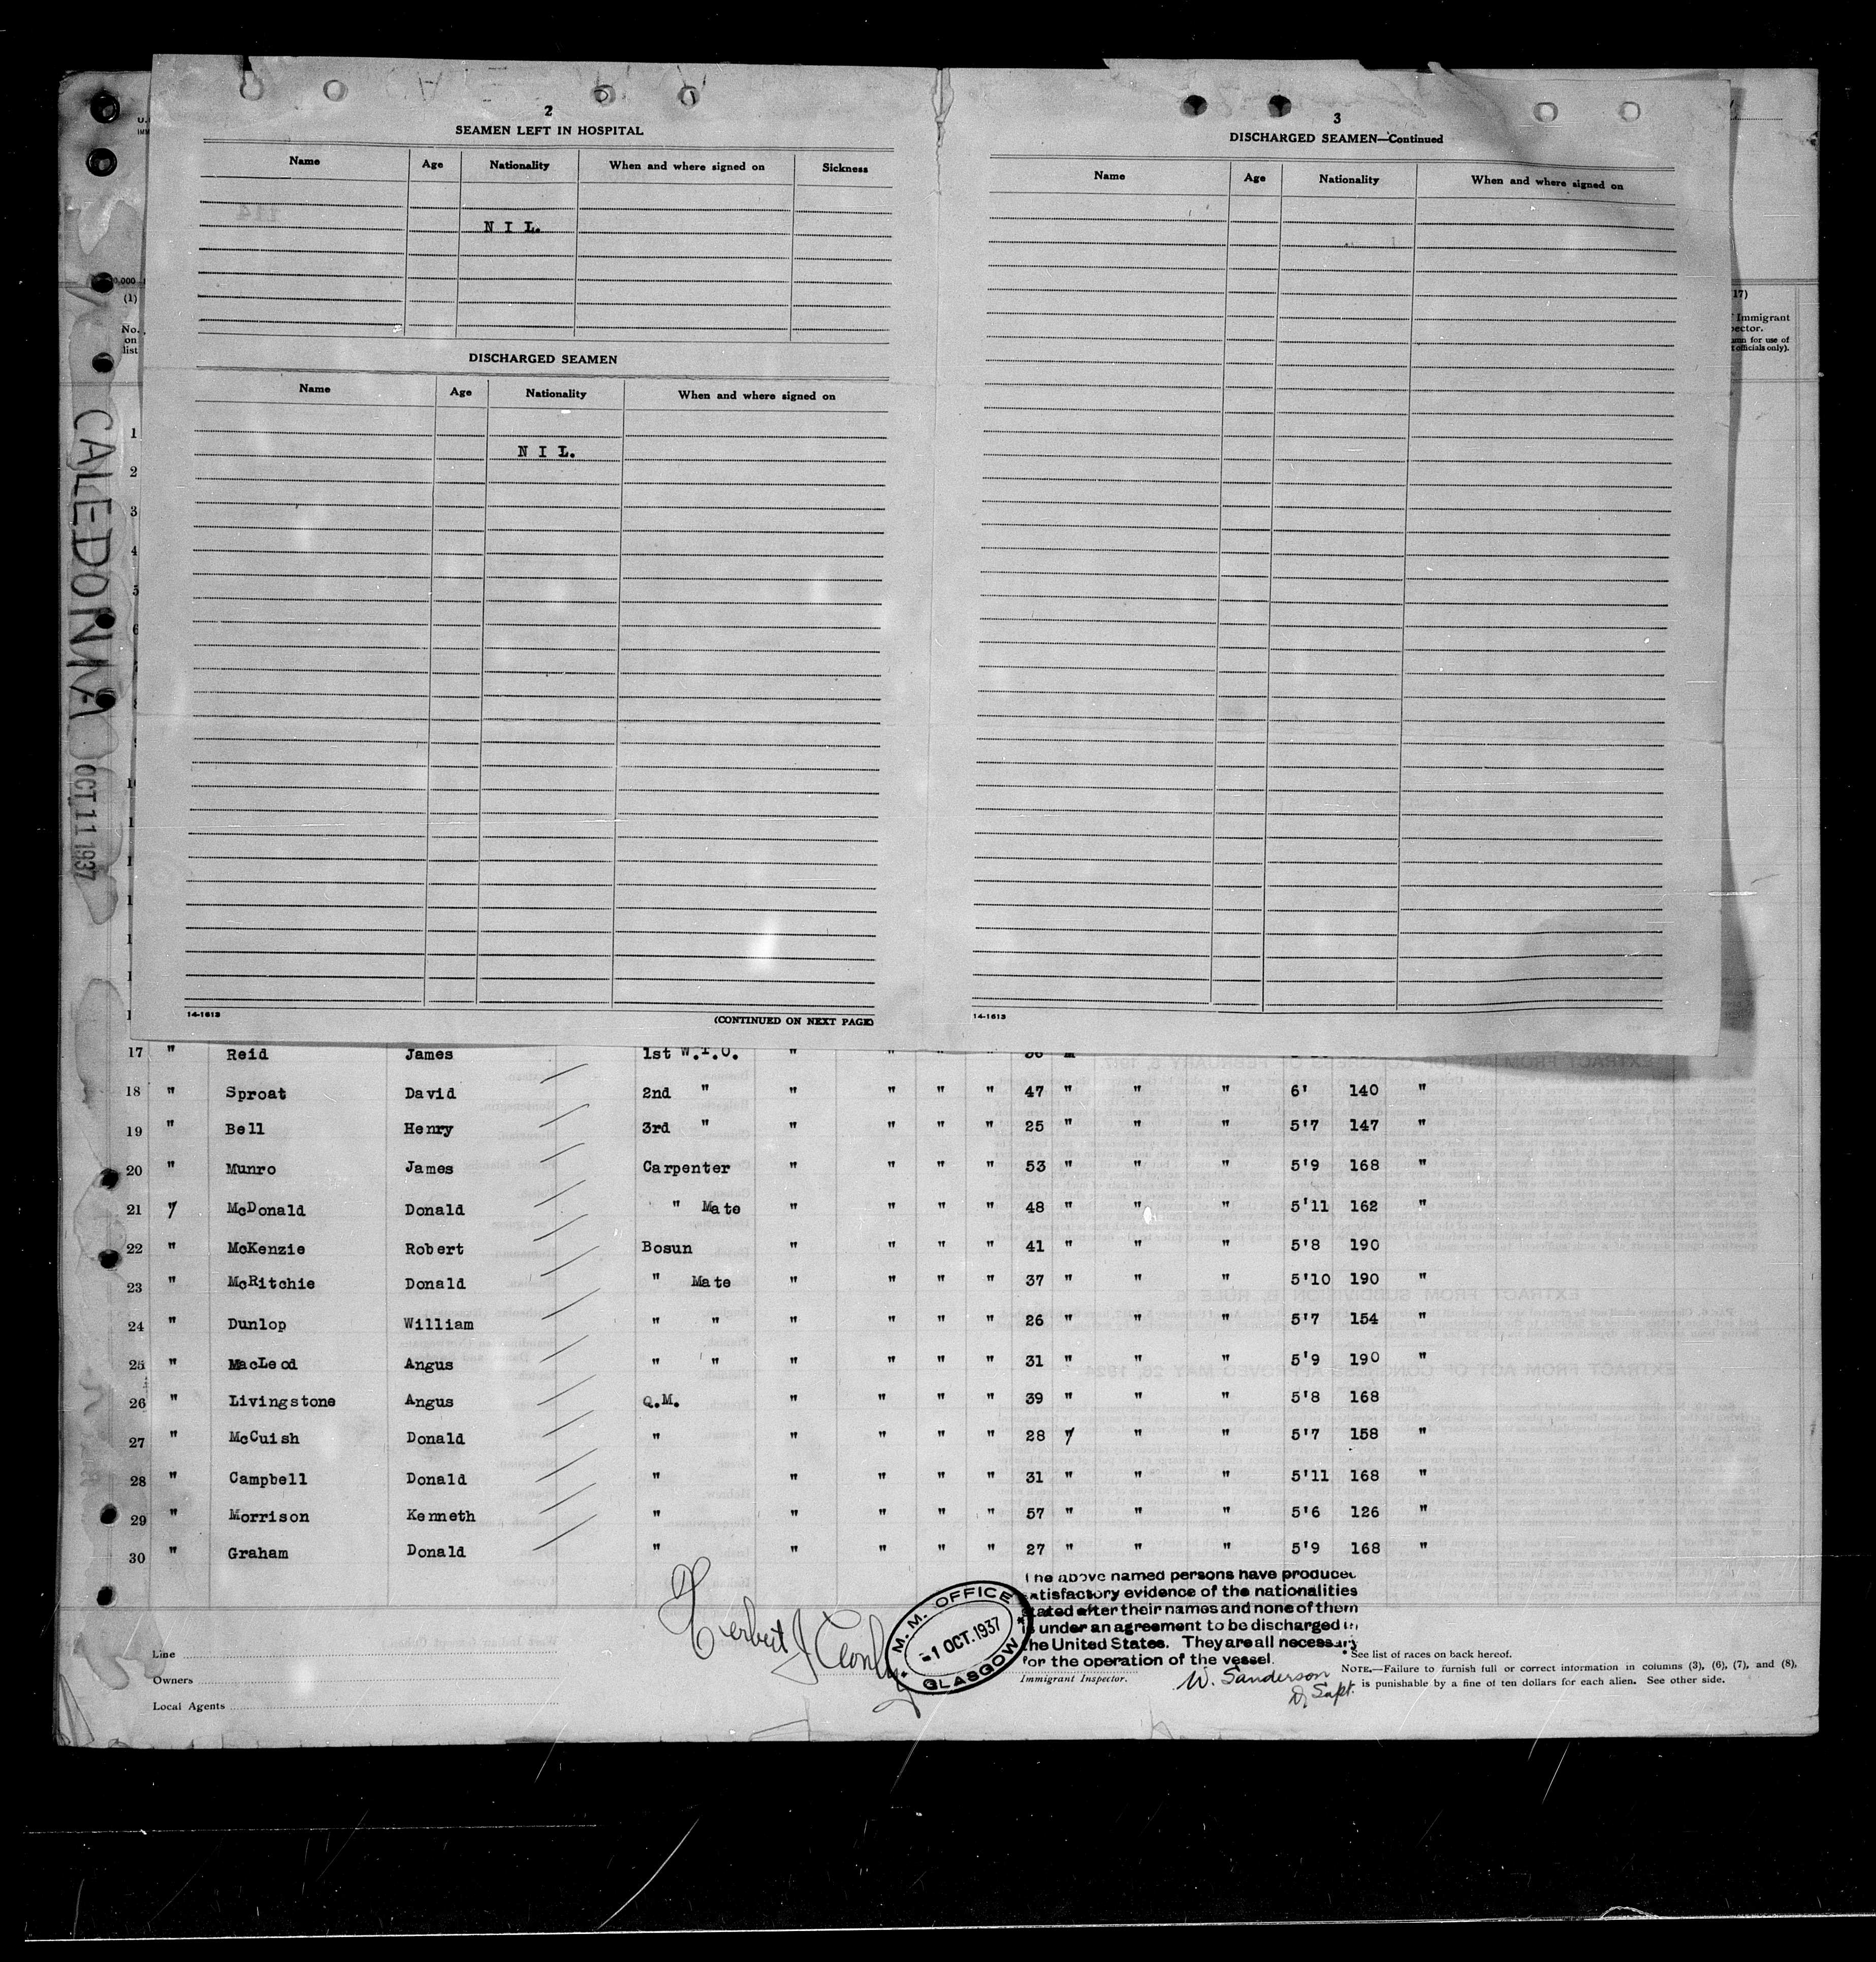 2
SEAMEN LEFT IN HOSPITAL
Name Age Nationality When and where signed on Sickness
114
N I L.
DISCHARGED SEAMEN
Name Age Nationality When and where signed on
N I L.
14-1613
(CONTINUED ON NEXT PAGE)
3
DISCHARGED SEAMEN—Continued
Name Age Nationality When and where signed on
14-1613
(1)
No.
on
list
17)
Immigrant
officials only).
CALEDONIA OCT 11 1937
1
2
3
4
5
6
17 " Reid James 1st W.T.O. " " " "
18 " Sproat David 2nd " " " " " 47 " " " 6' 140 "
19 " Bell Henry 3rd " " " " " 25 " " " 5'7 147 "
20 " Munro James Carpenter " " " " 53 " " " 5'9 168 "
21 " McDonald Donald " Mate " " " " 48 " " " 5'11 162 "
22 " McKenzie Robert Bosun " " " " 41 " " " 5'8 190
23 " McRitchie Donald " Mate " " " " 37 " " " 5'10 190 "
24 " Dunlop William " " " " " " 26 " " " 5'7 154 "
25 " MacLeod Angus " " " " " " 31 " " " 5'9 190 "
26 " Livingstone Angus Q.M. " " " " 39 " " " 5'8 168
27 " McCuish Donald " " " " " 28 " " " 5'7 158 "
28 " Campbell Donald " " " " " 31 " " " 5'11 168 "
29 " Morrison Kenneth " " " " " 57 " " " 5'6 126 "
30 " Graham Donald " " " " " 27 " " " 5'9 168 "
The above named persons have produced
satisfactory evidence of the nationalities
stated after their names and none of them
is under an agreement to be discharged in
the United States. They are all necessary
for the operation of the vessel.
Herbert J
M. M. OFFICE
-1 OCT. 1937
GLASGOW
Immigrant Inspector.
W. Sanderson
D. Supt.
Line
Owners
Local Agents
* See list of races on back hereof.
NOTE.—Failure to furnish full or correct information in columns (3), (6), (7), and (8),
is punishable by a fine of ten dollars for each alien. See other side.